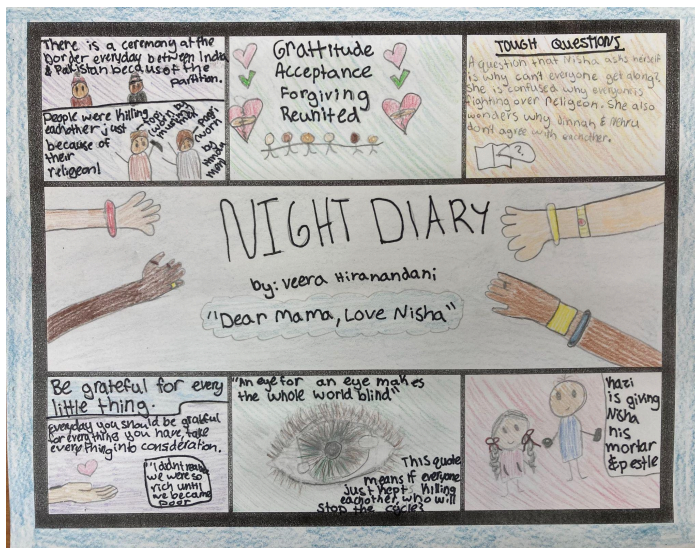 There is a ceremony at the
border everyday between India
& Pakistan because of the
partition.
People were killing
eachother just
because of
their
religeon!
Grattitude
Acceptance
Forgiving
Reunited
TOUGH QUESTIONS
A question that Nisha asks herself
is why can't everyone get along?
She is confused why everyone is
fighting over religeon. She also
wonders why Jinnah & Nehru
don't agree with eachother.
?
NIGHT DIARY
by: Veera Hiranandani
"Dear Mama, Love Nisha"
Be grateful for every
little thing.
Everyday you should be grateful
for everything you have, take
everything into consideration.
"I didn't realize
we were so
rich until
we became
poor
"An eye for an eye makes
the whole world blind"
This quote
means if everyone
just kept killing
eachother, who will
stop the cycle?
Kazi
is giving
Nisha
his
mortar
& pestle